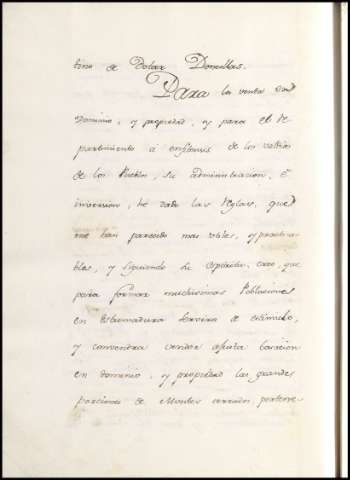 tino de Dotar Doncellas.
Para la venta del
Dominio, y propiedad, y para el re
partimiento a enfiteusis de los valdios
de los Pueblos, su administracion, è
inversion, hè dado las Reglas, que
me han parecido mas utiles, y practica
bles, y siguiendo su espiritu, creo, que
para formar muchisimas Poblaciones
en Estremadura servira de estimulo,
y convendra vender â justa tasacion
en dominio, y propiedad las grandes
porciones de Montes cerrados pertene-